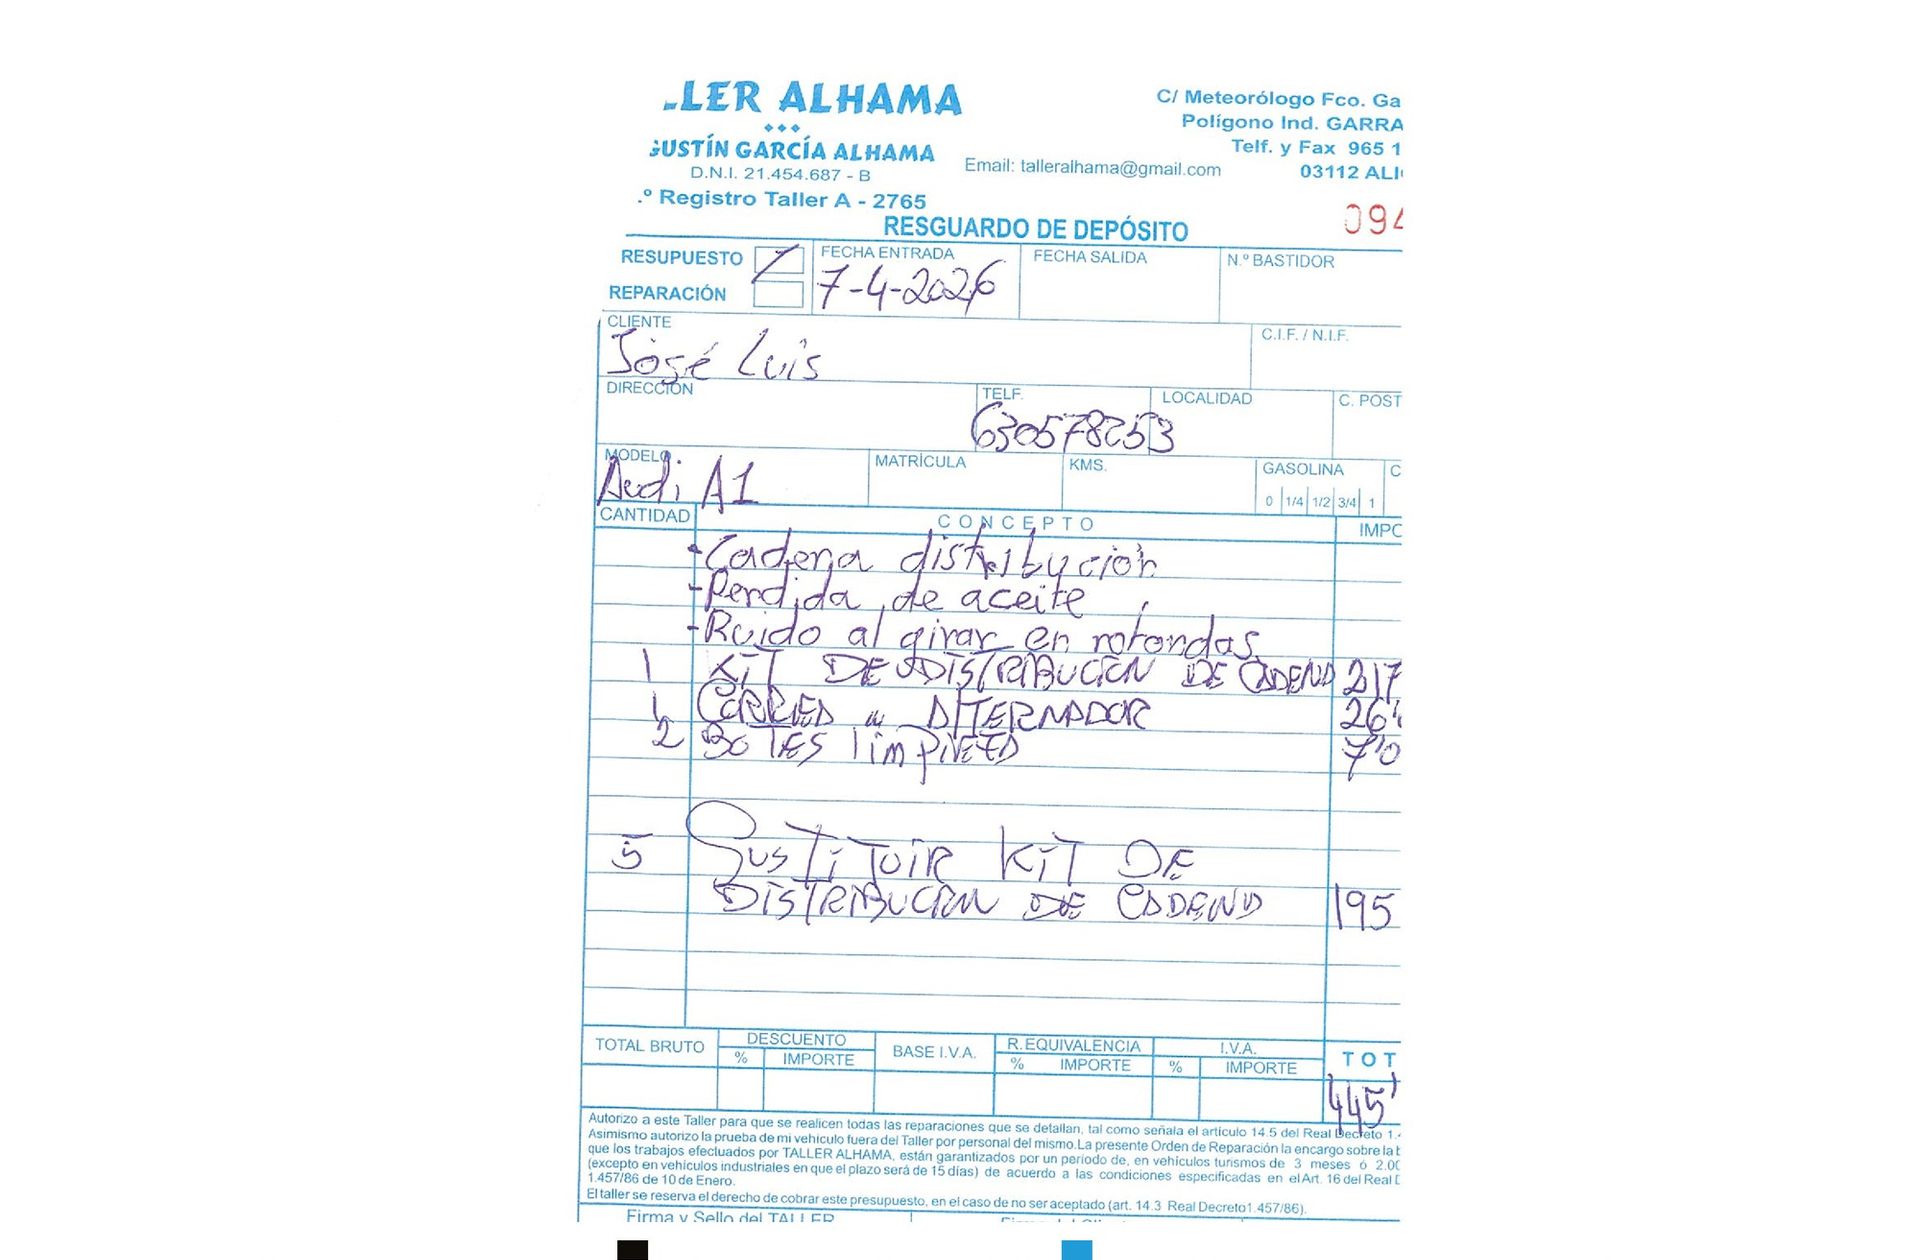 LER ALHAMA
GUSTÍN GARCÍA ALHAMA
D.N.I. 21.454.687 - B
.º Registro Taller A - 2765
Email: talleralhama@gmail.com
C/ Meteorólogo Fco. Ga
Polígono Ind. GARRA
Telf. y Fax 965 1
03112 ALI
RESGUARDO DE DEPÓSITO
094
RESUPUESTO
REPARACIÓN
FECHA ENTRADA
7-4-2026
FECHA SALIDA
N.º BASTIDOR
CLIENTE
José Luis
C.I.F. / N.I.F.
DIRECCIÓN
TELF.
630578253
LOCALIDAD
C. POST
MODELO
Audi A1
MATRÍCULA
KMS.
GASOLINA
0 1/4 1/2 3/4 1
C
CANTIDAD CONCEPTO IMPO
-Cadena distribución
-Perdida de aceite
-Ruido al girar en rotondas
1 KIT DE DISTRIBUCIÓN DE CADENA 217
1 CORREA " ALTERNADOR 26'
2 BOTES limpieza 7'0
5 SUSTITUIR KIT DE
DISTRIBUCION DE CADENA 195
TOTAL BRUTO
DESCUENTO
% IMPORTE
BASE I.V.A.
R. EQUIVALENCIA
% IMPORTE
I.V.A.
% IMPORTE
TOT
445'
Autorizo a este Taller para que se realicen todas las reparaciones que se detallan, tal como señala el artículo 14.5 del Real Decreto 1.4
Asimismo autorizo la prueba de mi vehículo fuera del Taller por personal del mismo. La presente Orden de Reparación la encargo sobre la b
que los trabajos efectuados por TALLER ALHAMA, están garantizados por un período de, en vehículos turismos de 3 meses ó 2.00
(excepto en vehículos industriales en que el plazo será de 15 días) de acuerdo a las condiciones especificadas en el Art. 16 del Real D
1.457/86 de 10 de Enero.
El taller se reserva el derecho de cobrar este presupuesto, en el caso de no ser aceptado (art. 14.3 Real Decreto 1.457/86).
Firma y Sello del TALLER